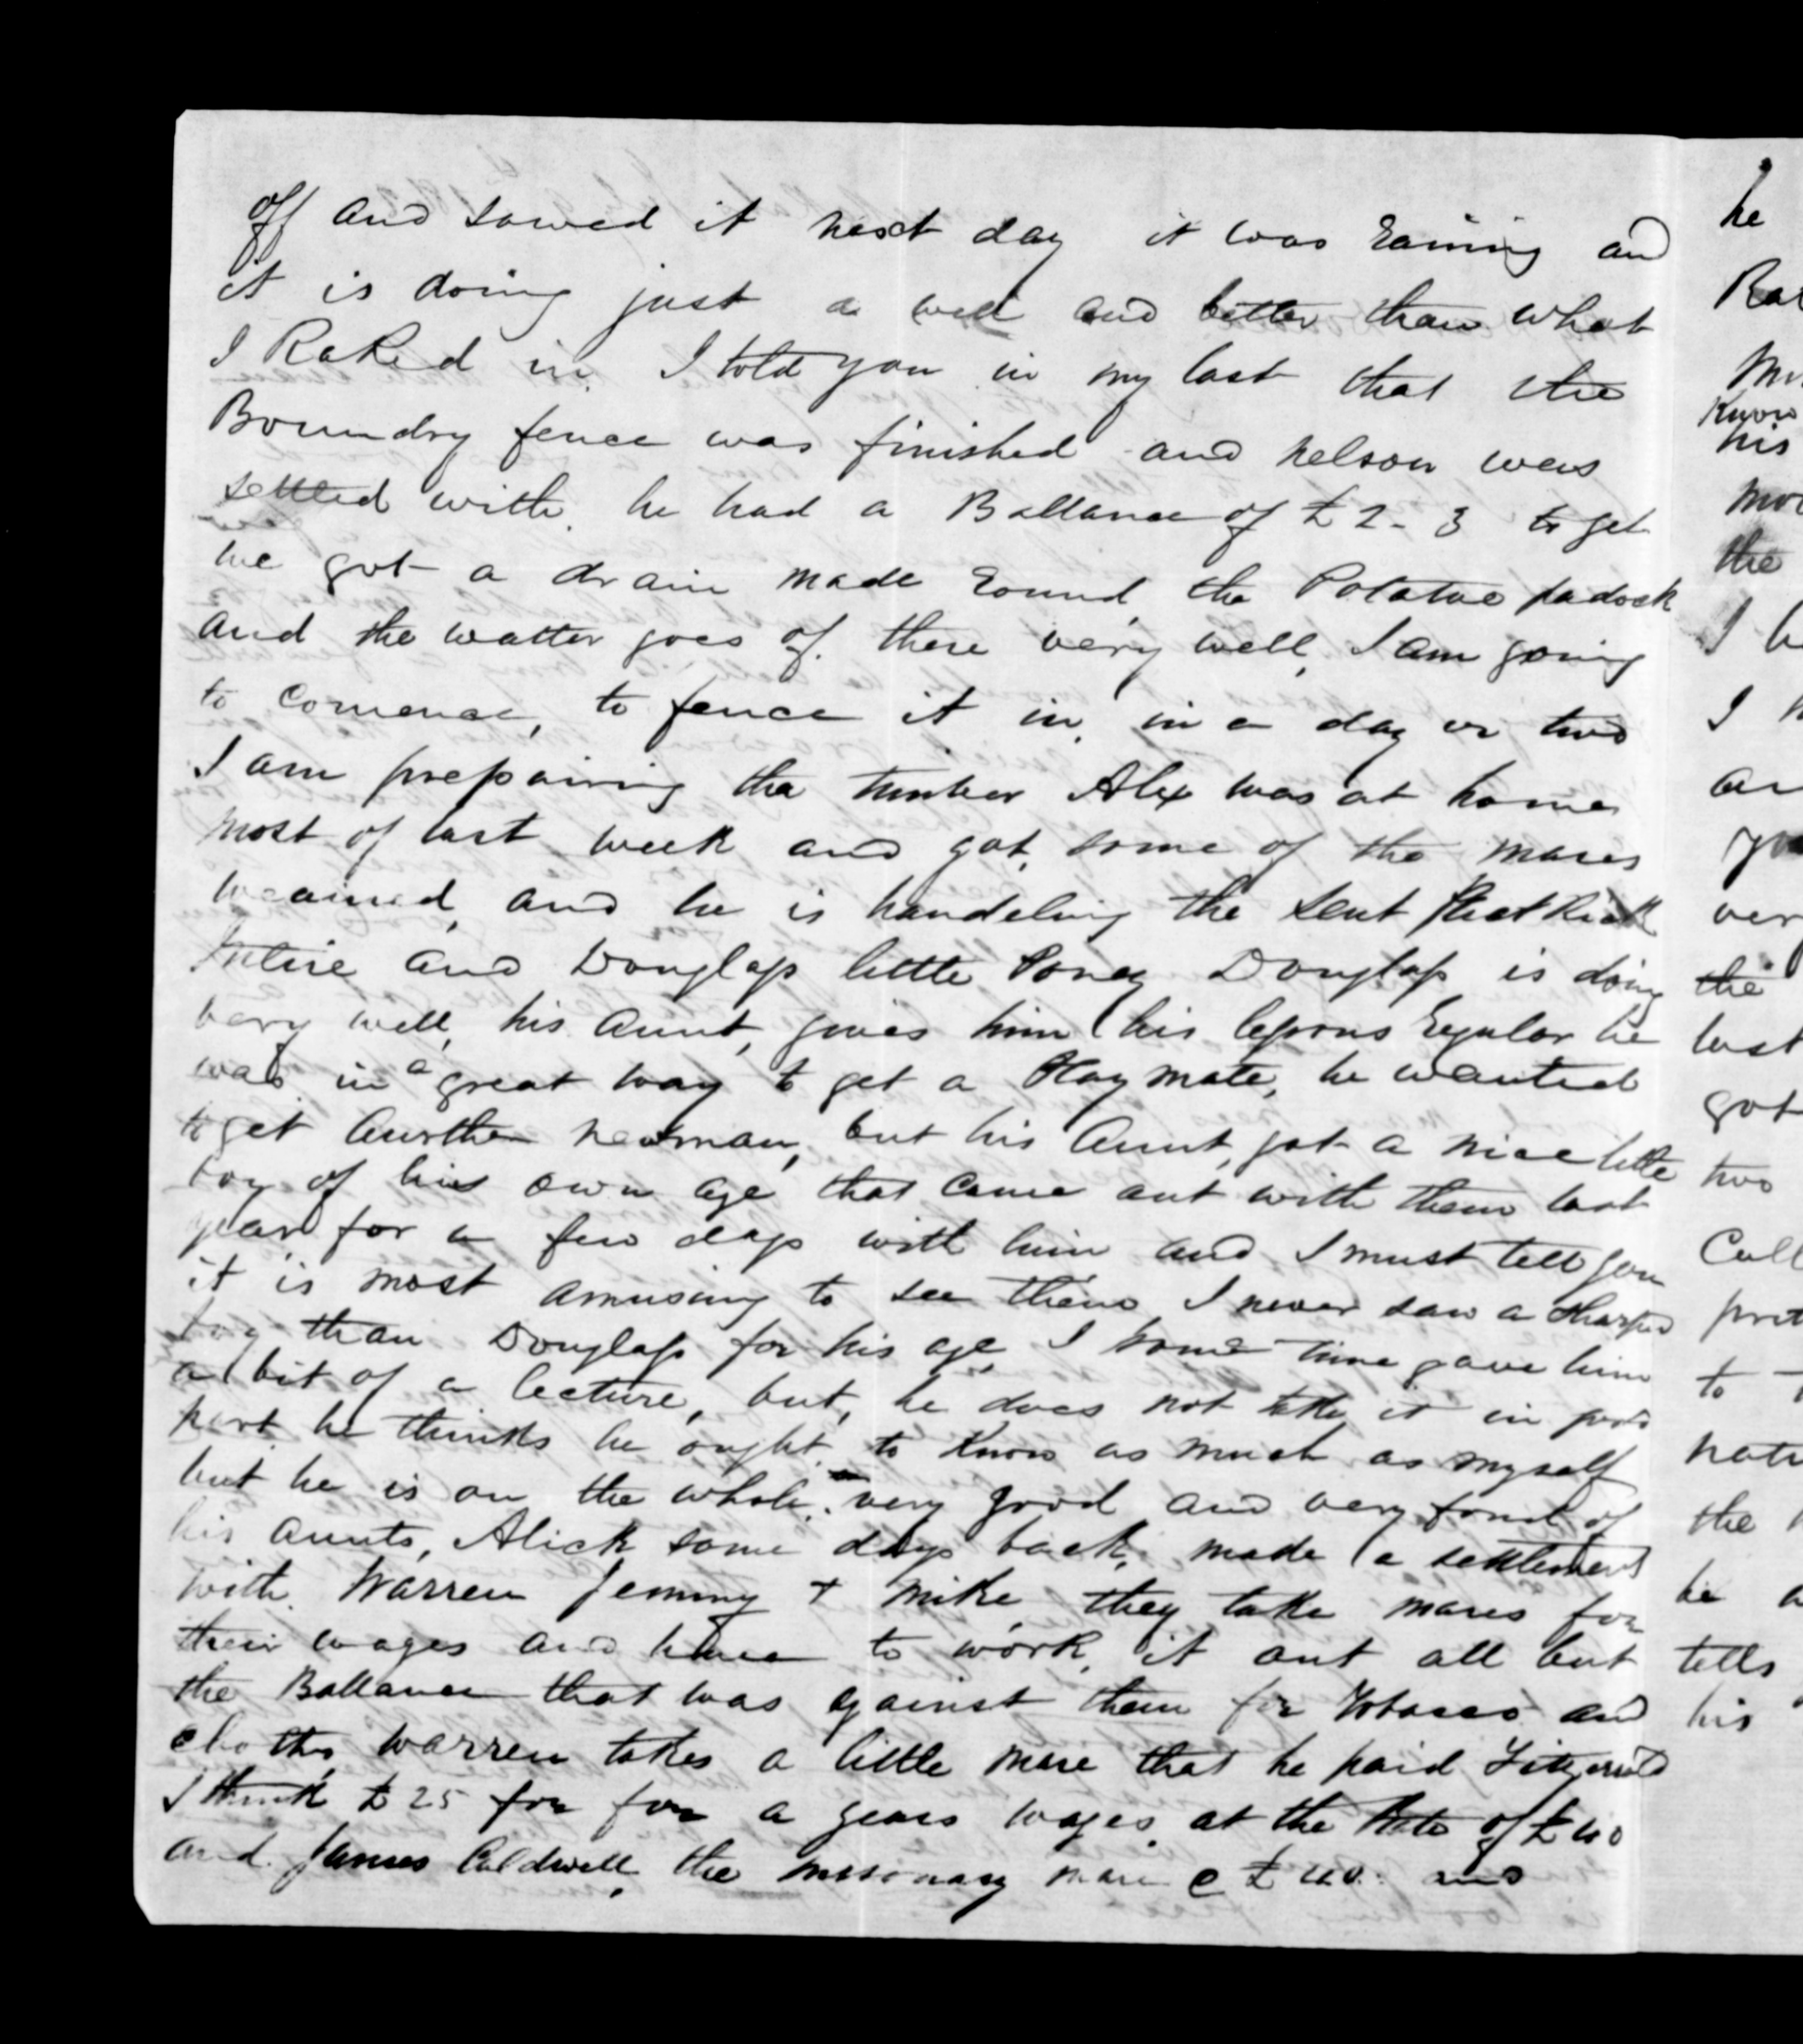 off and sowed it next day it was Raining and
it is doing just as well and better than what
I Raked in. I told you in my last that the
Boundry fence was finished and nelson was
settled with. he had a Ballance of £2-3 to get
we got a drain made Round the Potatoe padock
and the watter goes of there very well, I am going
to Comence, to fence it in, in a day or two
I am prepairing the timber Alex was at home
most of last week and got some of the mares
weained, and he is handeling the
Intire and Douglass little Poney Douglass is doing
very well, his Aunt, gives him his lessons Regular he
was in a great way to get a Playmate, he wanted
to get Another newman, but his Aunt, got a nice little
boy of his own age that Came out with them last
year for a few days with him and I must tell you
it is most amusing to see them I never saw a sharper
boy than Douglass for his age I some time gave him
a bit of a lecture, but, he does not take it in good
part he thinks he ought to Know as much as myself
but he is on the whole. very good and very fond of
his aunts, Alick some days back, made a settlement
with. Warren Jemmy + Mike they take mares for
their wages and have to work, it out all but
the Ballance that was against them for Tobacco and
cloths, Warren takes a little mare that he paid Fitzgerald
I think £25 for for a years wages, at the Rate of £40
and James Caldwell, the missonary mare @ £40. and
he
Mr
Know
his
the
I
I
the
last
got
two
Call
to
the
he
tells
his